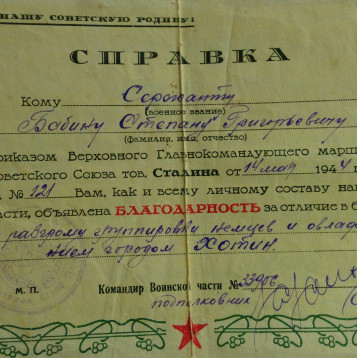 НАШУ СОВЕТСКУЮ РОДИНУ!
СПРАВКА
Кому Сержанту
(военное звание)
Бабину Степану Григорьевичу
(фамилия, имя, отчество)
риказом Верховного Главнокомандующего марш
оветского Союза тов. Сталина от 1944
№ Вам, как и всему личному составу на
асти, объявлена БЛАГОДАРНОСТЬ за отличие в б
разгрому группировки немцев и овладе
нием городом Хотин.
м. п. Командир Воинской части № 33906
подполковник